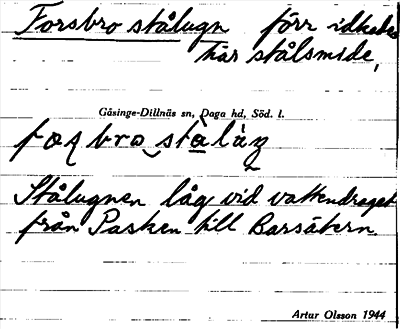 Forsbro stålugn förr idkades
här stålsmide,
Gåsinge-Dillnäs sn, Daga hd, Söd. l.
Stålugnen låg vid vattendraget
från Pasken till Barsätern
Artur Olsson 1944